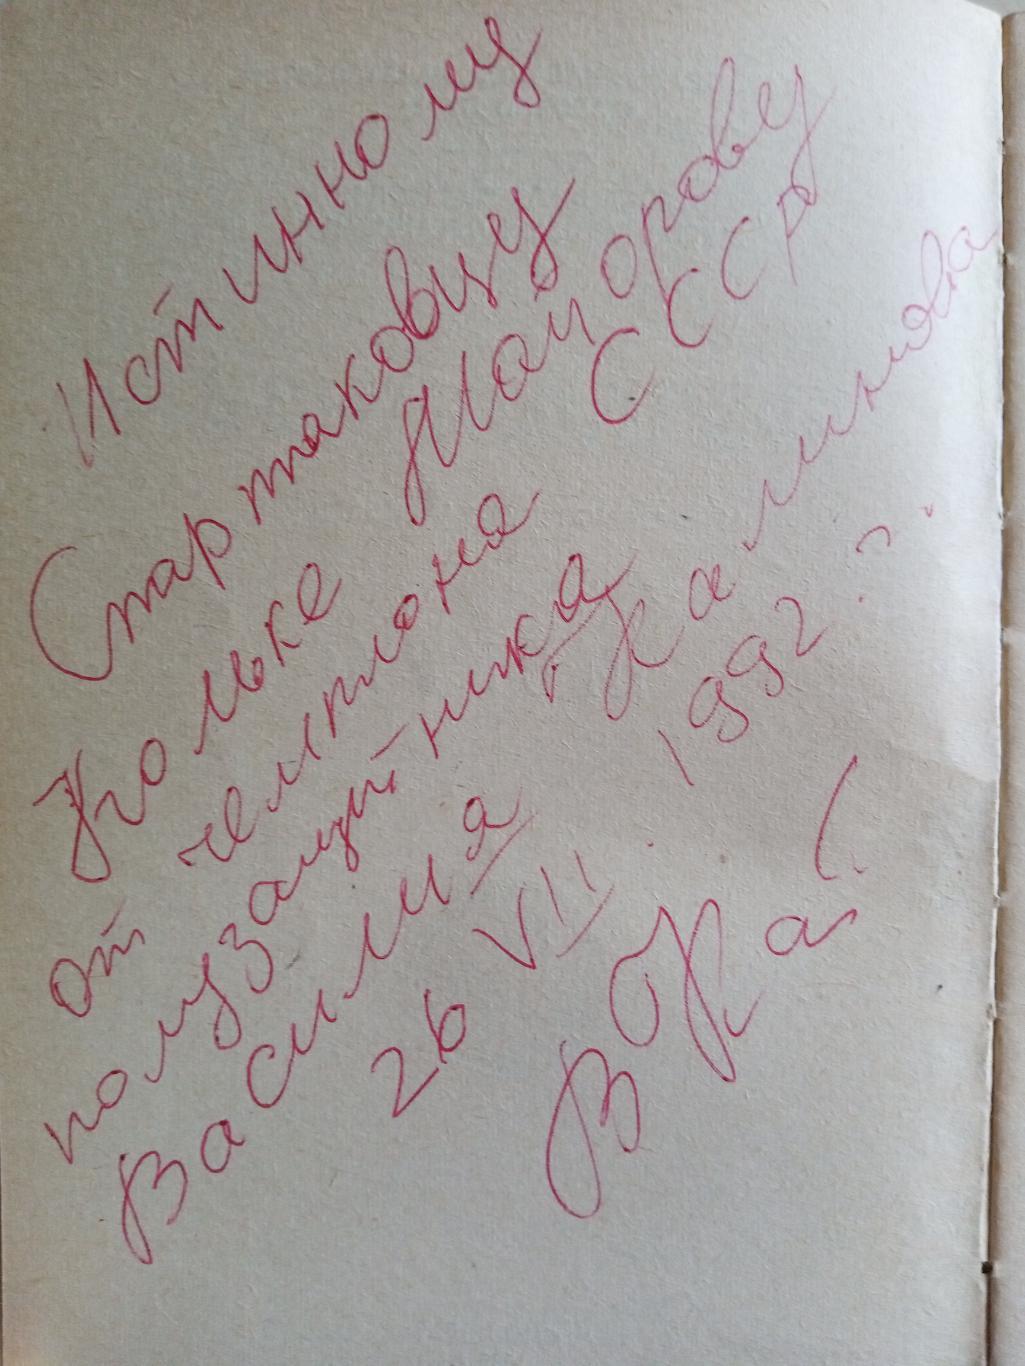 Истинному
Спартаковцу
Кольке Майорову
от чемпиона СССР
полузащитника
Василия Калинова
26 VII 1992 г.
Ора!